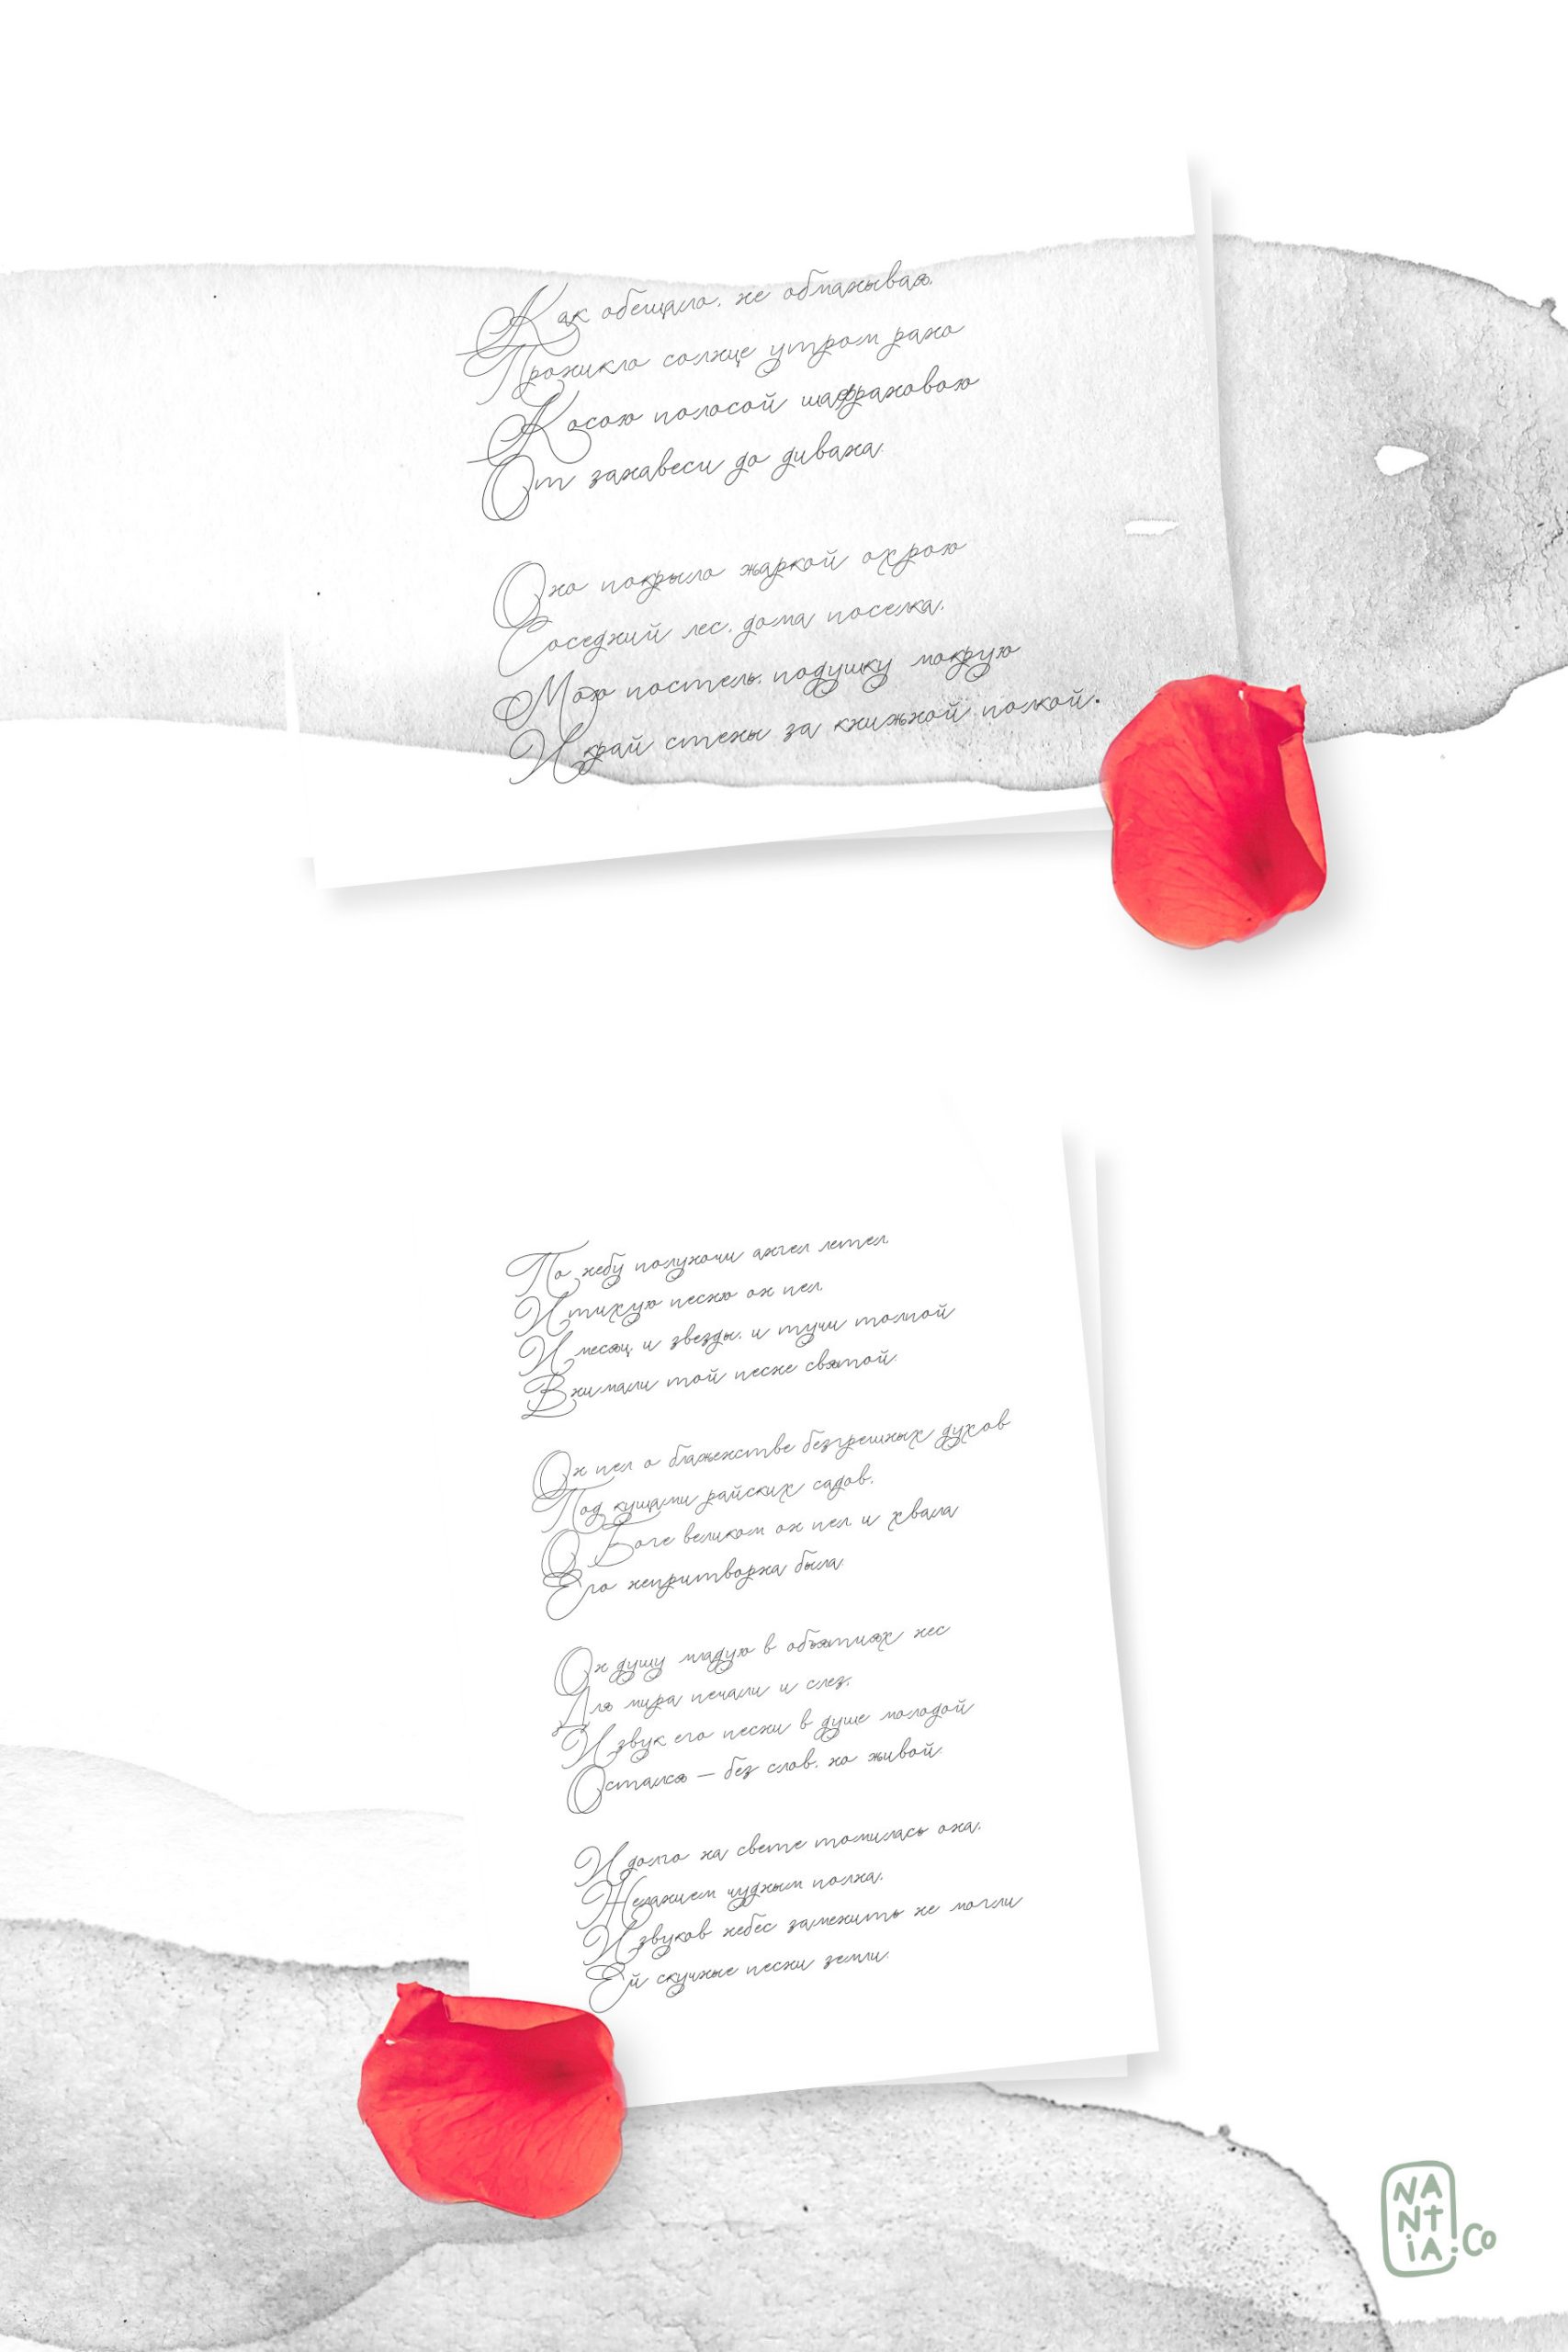 Как обещало, не обманывая,
Проникло солнце утром рано
Косою полосой шафрановою
От занавеси до дивана.
Оно покрыло жаркой охрою
Соседний лес, дома поселка,
Мою постель, подушку мокрую
И край стены за книжной полкой.
По небу полуночи ангел летел,
И тихую песню он пел,
И месяц и звезды, и тучи толпой
Внимали той песне святой.
Он пел о блаженстве безгрешных духов
Под кущами райских садов,
О Боге великом он пел, и хвала
Его непритворна была.
Он душу младую в объятиях нес
Для мира печали и слез;
И звук его песни в душе молодой
Остался — без слов, но живой.
И долго на свете томилась она,
Желанием чудным полна,
И звуков небес заменить не могли
Ей скучные песни земли.
NA
NT
iA.Co